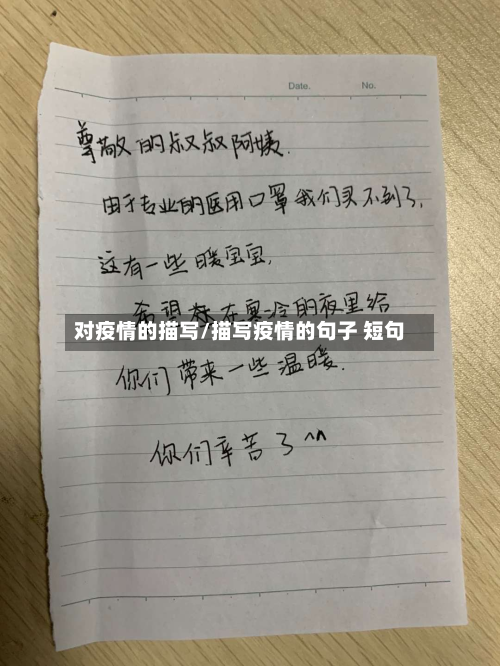 Date. No.
尊敬的叔叔阿姨.
由于专业的医用口罩我们买不到了,
这有一些暖宝宝,
希望 在寒冷的夜里给
对疫情的描写/描写疫情的句子 短句
你们带来一些温暖.
你们辛苦了 ^^